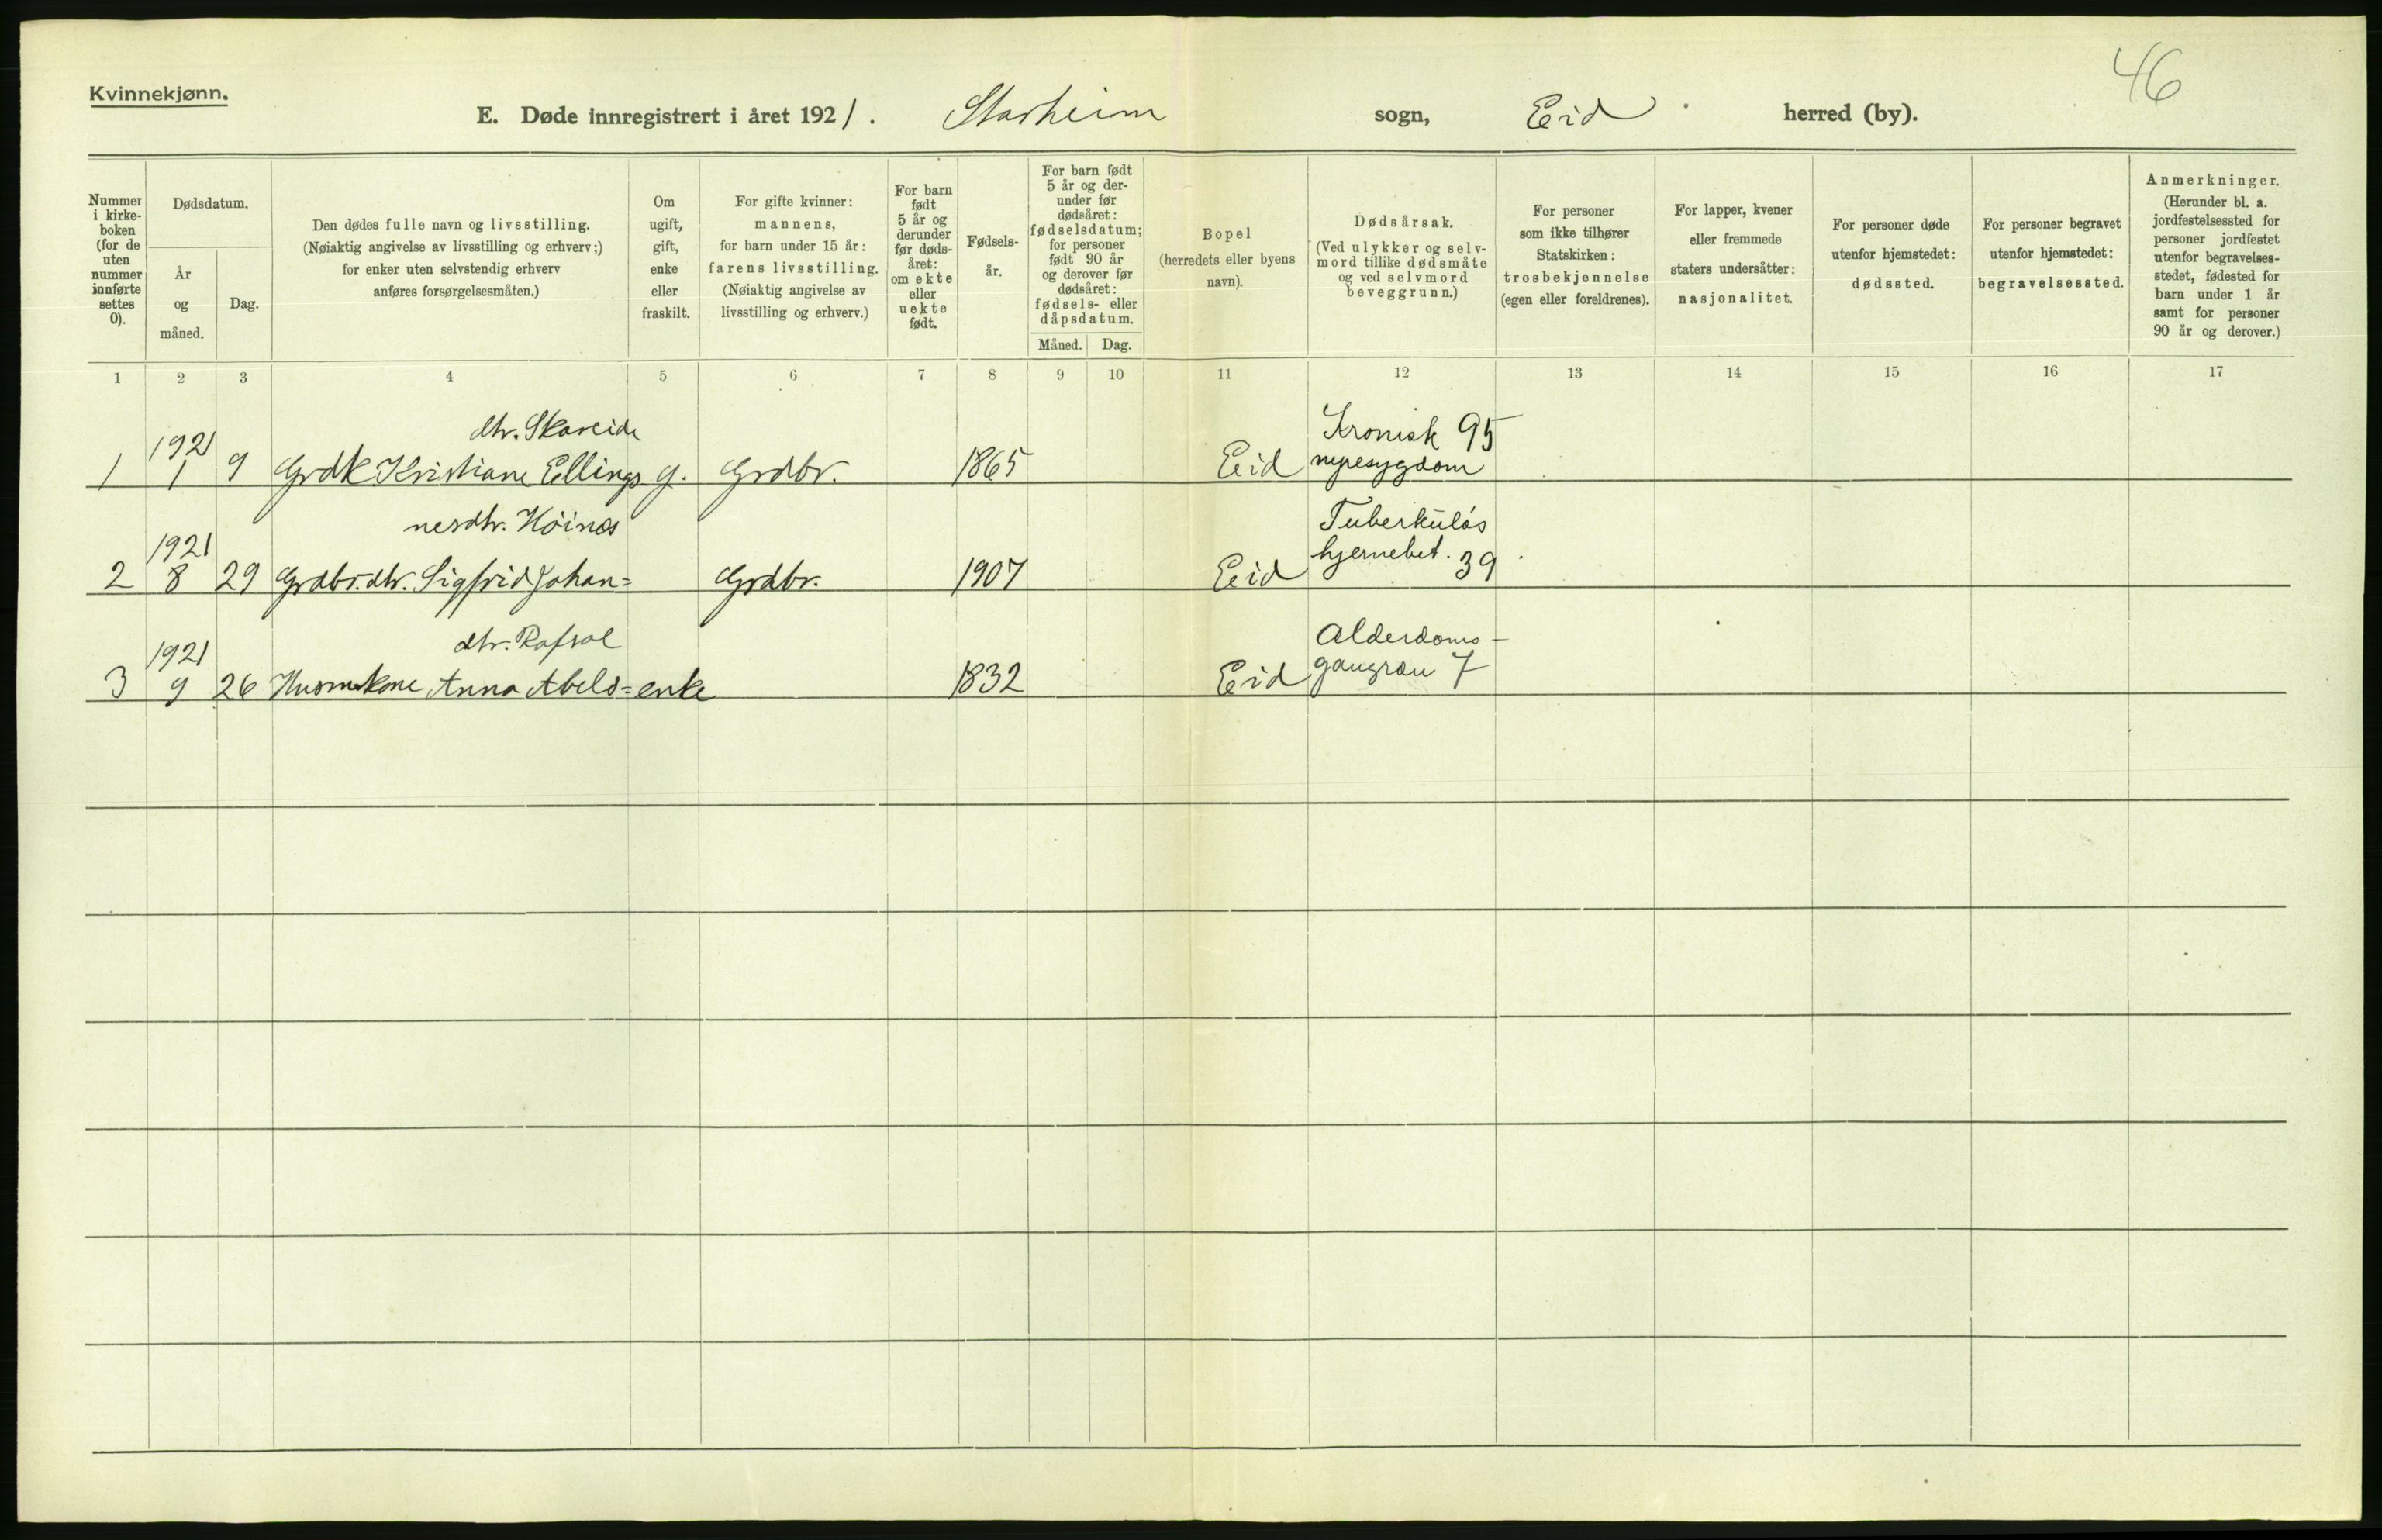 46
Kvinnekjønn.
E. Døde innregistrert i året 1921. Starheim sogn, Eid herred (by).
Nummer i kirke- boken (for de uten nummer innførte settes 0).
Dødsdatum.
År og måned.
Dag.
Den dødes fulle navn og livsstilling.
(Nøiaktig angivelse av livsstilling og erhverv;)
for enker uten selvstendig erhverv
anføres forsørgelsesmåten.)
Om ugift, gift, enke eller fraskilt.
For gifte kvinner:
mannens,
for barn under 15 år:
farens livsstilling.
(Nøiaktig angivelse av
livsstilling og erhverv.)
For barn født 5 år og derunder før døds- året: om ekte eller uekte født.
Fødsels- år.
For barn født 5 år og der- under før dødsåret: fødselsdatum; for personer født 90 år og derover før dødsåret: fødsels- eller dåpsdatum.
Måned. Dag.
Bopel
(herredets eller byens
navn).
Dødsårsak.
(Ved ulykker og selv-
mord tillike dødsmåte
og ved selvmord
beveggrunn.)
For personer
som ikke tilhører
Statskirken:
trosbekjennelse
(egen eller foreldrenes).
For lapper, kvener
eller fremmede
staters undersåtter:
nasjonalitet.
For personer døde
utenfor hjemstedet:
dødssted.
For personer begravet
utenfor hjemstedet:
begravelsessted.
Anmerkninger.
(Herunder bl. a.
jordfestelsessted for
personer jordfestet
utenfor begravelses-
stedet, fødested for
barn under 1 år
samt for personer
90 år og derover.)
1 2 3 4 5 6 7 8 9 10 11 12 13 14 15 16 17
1921 dtr. Skareide Kronisk 95
1 1 9 Grdk Kristiane Ellings g. Grdbr. 1865 Eid nyresygdom
1921 nesdtr. Höinæs Tuberkuløs
hjernebet. 39
2 8 29 Grdbr.dtr. Sigfrid Johan= Grdbr. 1907 Eid
1921 dtr. Rafval Alderdoms-
3 9 26 Husmkone Anna Abels= enke 1832 Eid gangræn 7